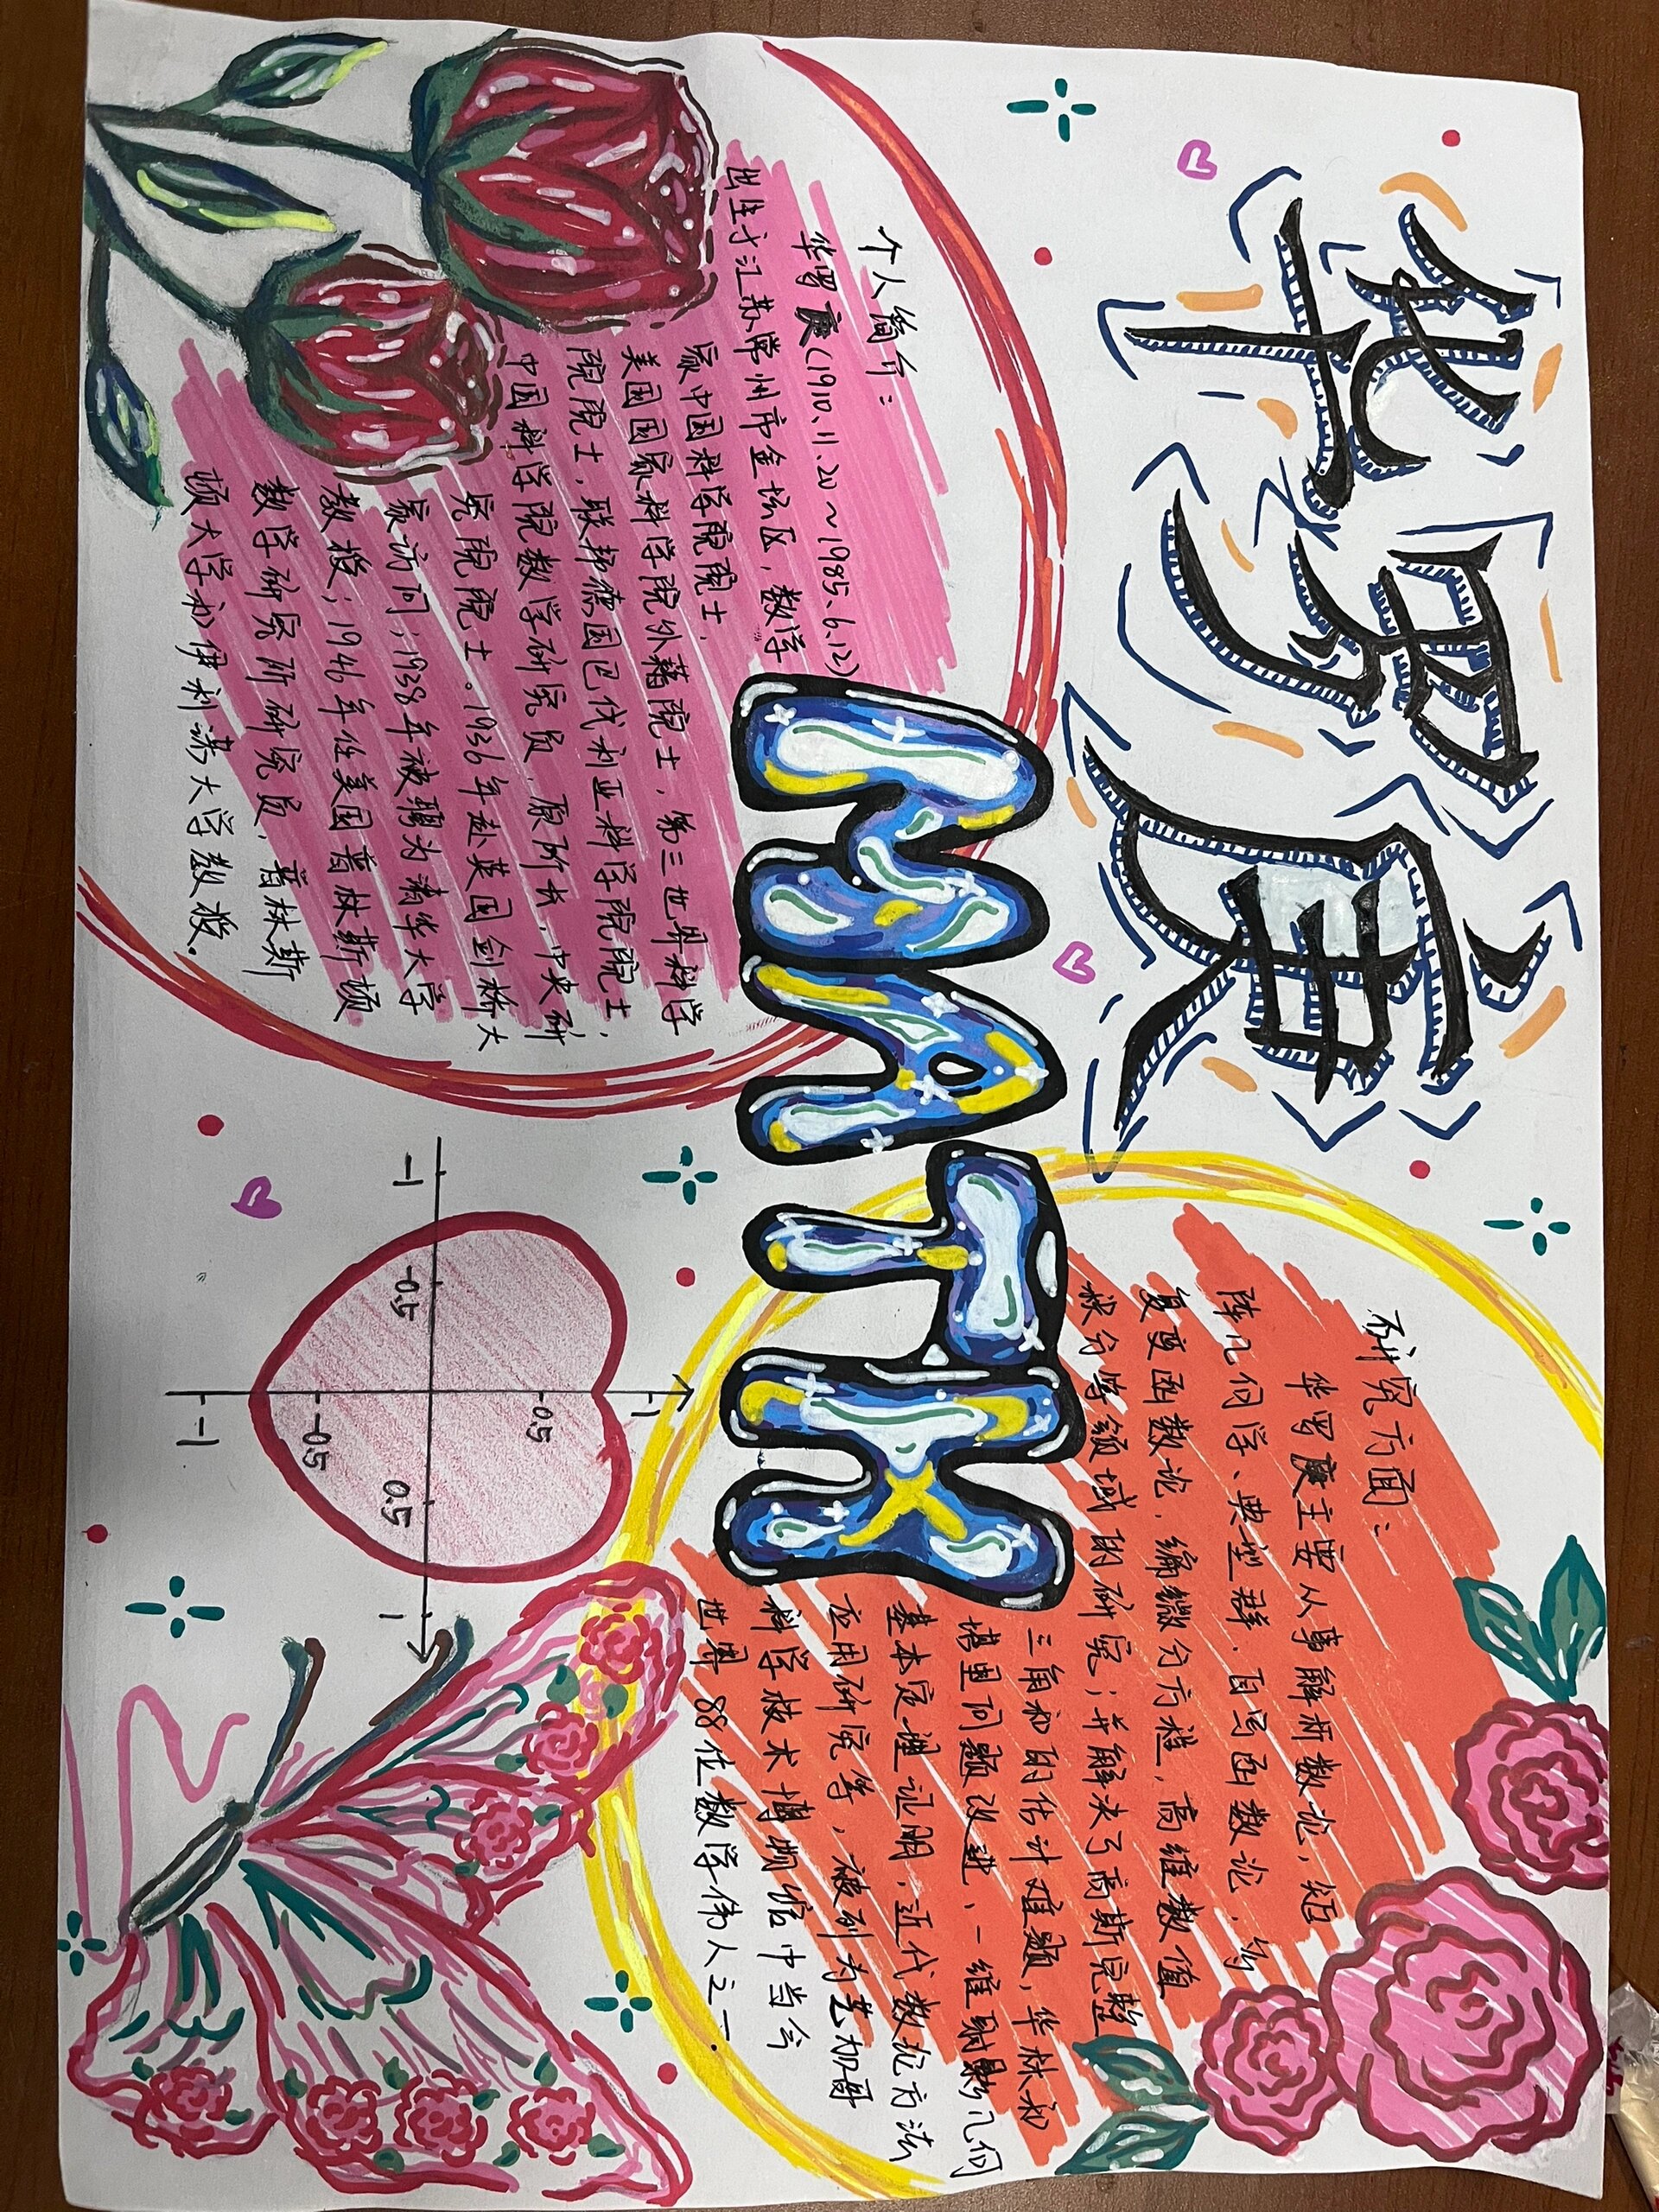 华罗庚
MATH
个人简介：
华罗庚（1910.11.20～1985.6.12）
出生于江苏常州市金坛区，数学
家中国科学院院士，
美国国家科学院外籍院士，第三世界科学
院院士，联邦德国巴伐利亚科学院院士，
中国科学院数学研究员，原所长，中央研
究院院士。1936年赴英国剑桥大
家访问；1938年被聘为清华大学
教授；1946年任美国普林斯顿
数学研究所研究员，普林斯
顿大学和伊利诺大学教授。
研究方面：
华罗庚主要从事解析数论，矩
阵几何学、典型群、自守函数论，多
复变函数论，偏微分方程，高维数值
积分等领域的研究；并解决了高斯完整
三角和的估计难题，华林和
塔里问题改进、一维射影几何
基本定理证明，近代数论方法
应用研究等，被列为芝加哥
科学技术博物馆中当今
世界88位数学伟人之一.
-1
-0.5
0.5
1
1
0.5
-0.5
-1